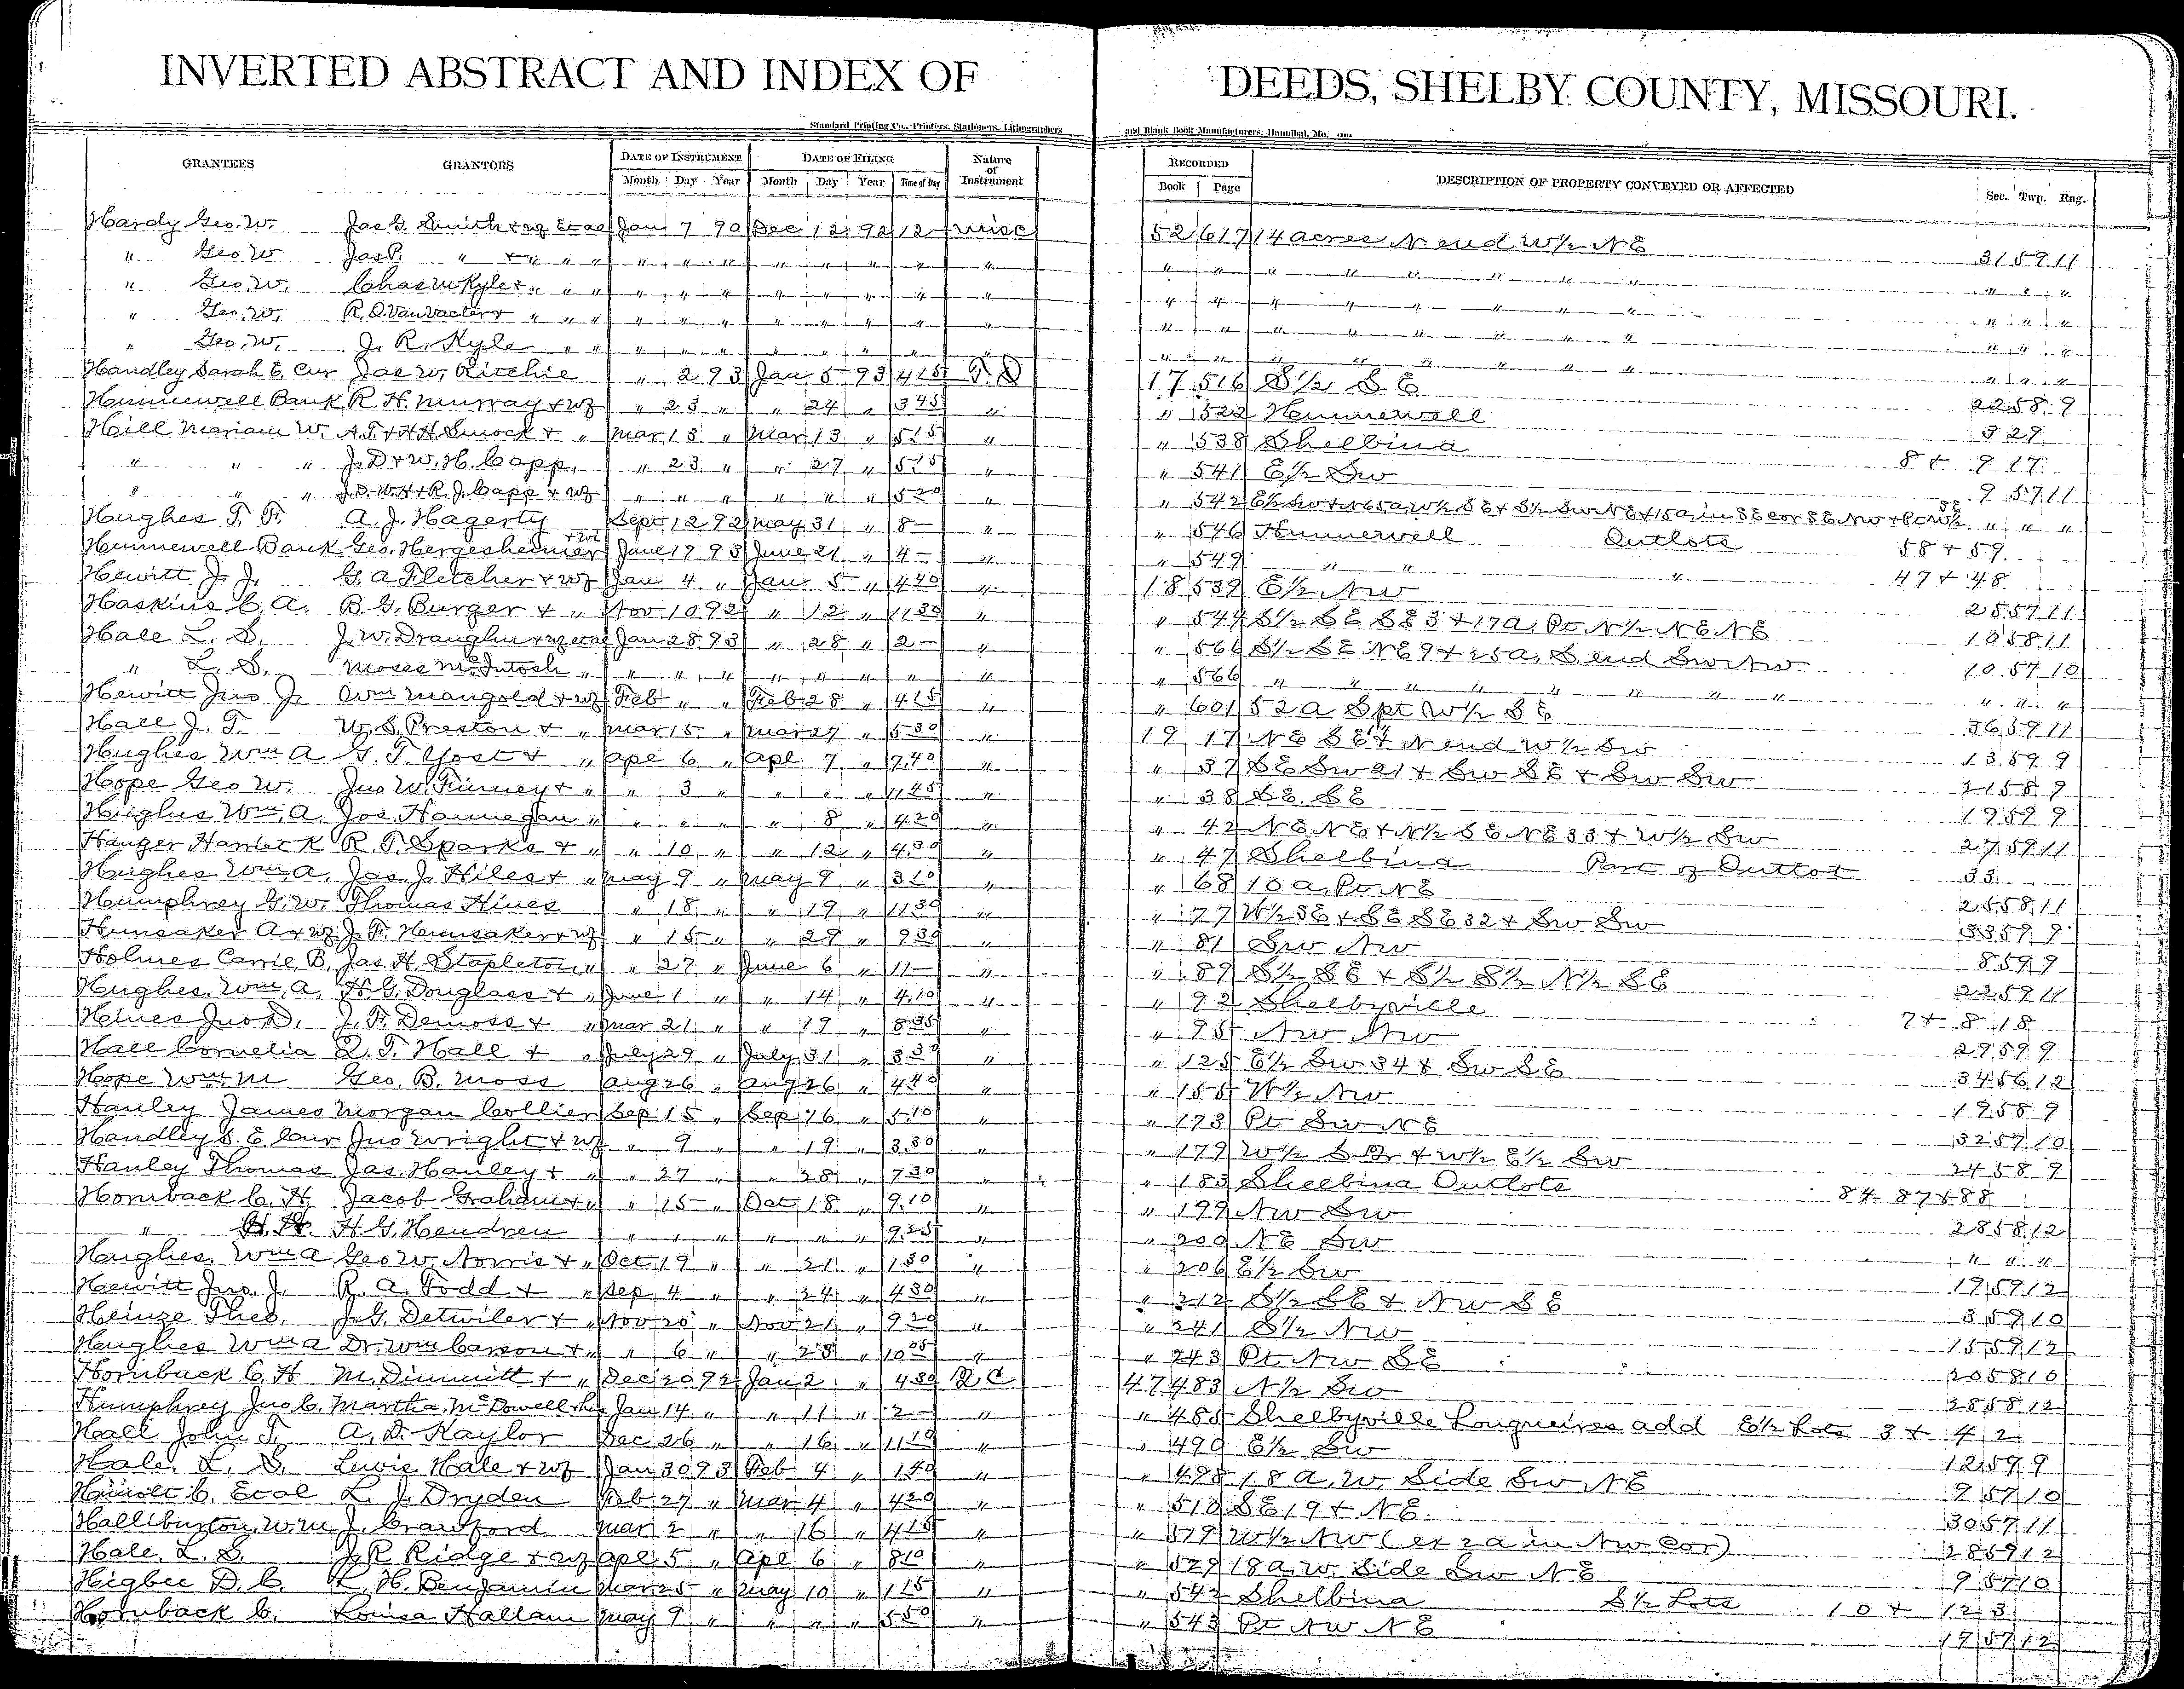 INVERTED ABSTRACT AND INDEX OF DEEDS, SHELBY COUNTY, MISSOURI.
Standard Printing Co., Printers, Stationers, Lithographers and Blank Book Manufacturers, Hannibal, Mo.
GRANTEES GRANTORS DATE OF INSTRUMENT DATE OF FILING Nature of Instrument RECORDED DESCRIPTION OF PROPERTY CONVEYED OR AFFECTED Sec. Twp. Rng.
Month Day Year Month Day Year Time of Day Book Page
Hardy Geo. W. Jas G. Smith & wf Et al Jan 7 90 Dec 12 92 12 - misc 52 617 14 acres N end W½ NE 31 59 11
" Geo W Jas P. " & " " " " " " " " " " " " " " " " " " " " "
" Geo. W. Chas M Kyle & " " " " " " " " " " " " " " " " " " " " "
" Geo. W. R. O. Van Vacter & " " " " " " " " " " " " " " " " " " " " "
" Geo. W. J. R. Kyle " " " " " " " " " " " " " " " " " " " "
Handley Sarah E. Cur Jas W. Ritchie " 2 93 Jan 5 93 4 15 T. D 17 516 S½ SE 22 58 9
Hunnewell Bank R. H. Murray & wf " 23 " " 24 " 3 45 " " 522 Hunnewell 3 29
Hill Mariam W. A. T. & H H Smock & " Mar 13 " Mar 13 " 5 15 " " 538 Shelbina 8 & 9 17
" " " J. D & W. H. Capp. " 23 " " 27 " 5 15 " " 541 E½ SW 9 57 11
" " " J. D. W. H & R. J. Capp & wf " " " " " " 5 20 " " 542 E½ SW & N 65 a W½ SE & S½ SW NE & 15 a in SE cor SE NW " " "
Hughes T. F. A. J. Hagerty Sept 12 92 May 31 " 8 - " " 546 Hunnewell Outlots 58 & 59
Hunnewell Bank Geo. Hergesheimer & wf June 19 93 June 21 " 4 - " " 549 " " 47 & 48
Hewitt J. J. G. A Fletcher & wf Jan 4 " Jan 5 " 4 40 " 18 539 E½ NW 25 57 11
Haskins C. A. B. G. Burger & " Nov 10 92 " 12 " 11 30 " " 544 S½ SE SE 3 & 17 a. Pt N½ NE NE 10 58 11
Hale L. S. J. W. Draughn & wf et al Jan 28 93 " 28 " 2 - " " 566 S½ SE NE 9 & 25 a. S. end SW NW 10 57 10
" L. S. Moses McIntosh " " " " " " " " " " 566 " " " " " " " " " " "
Hewitt Jno J. Wm Mangold & wf Feb " " Feb 28 " 4 15 " " 601 52 a S pt W½ SE 36 59 11
Hall J. T. W. S. Preston & " Mar 15 " Mar 27 " 5 30 " 19 17 NE SE 14 & N end W½ SW 13 59 9
Hughes Wm A G. T. Yost & " Apl 6 " Apl 7 " 7 40 " " 37 SE SW 21 & SW SE & SW SW 21 58 9
Hope Geo W. Jno W. Finney & " " 3 " " " " 11 45 " " 38 SE. SE 19 59 9
Hughes Wm. A. Jos. Hannegan " " " " " 8 " 4 20 " " 42 NE NE & N½ SE NE 33 & W½ SW 27 59 11
Hanger Harriet K R. T. Sparks & " " 10 " " 12 " 4 30 " " 47 Shelbina Part of Outlot 33
Hughes Wm. A. Jas. J. Hiles & " May 9 " May 9 " 3 10 " " 68 10 a. Pt NE 25 58 11
Humphrey G. W. Thomas Hines " 18 " " 19 " 11 30 " " 77 W½ SE & SE SE 32 & SW SW 33 59 9
Hunsaker A & wf J. F. Hunsaker & wf " 15 " " 29 " 9 30 " " 81 SW NW 8 59 9
Holmes Carrie B. Jas. H. Stapleton " " 27 " June 6 " 11 - " " 89 S½ SE & S½ S½ N½ SE 22 59 11
Hughes. Wm. A. H. G. Douglass & " June 1 " " 14 " 4 10 " " 92 Shelbyville 7 & 8 18
Hines Jno D. J. F. Demoss & " Mar 21 " " 19 " 8 35 " " 95 NW NW 29 59 9
Hall Cornelia Q. T. Hall & " July 29 " July 31 " 3 30 " " 125 E½ SW 34 & SW SE 34 56 12
Hope Wm. M Geo. B. Moss Aug 26 " Aug 26 " 4 40 " " 155 W½ NW 19 58 9
Hanley James Morgan Collier Sep 15 " Sep 16 " 5 10 " " 173 Pt SW NE 32 57 10
Handley S. E. Cur Jno Wright & wf " 9 " " 19 " 3 30 " " 179 W½ S Qr & W½ E½ SW 24 58 9
Hanley Thomas Jas. Hanley & " " 27 " " 28 " 7 30 " " 183 Shelbina Outlots 84 87 & 88
Hornback C. H. Jacob Graham & " " 15 " Oct 18 " 9 10 " " 199 NW SW 28 58 12
" C. H. H. G. Hendren " " " " " " 9 25 " " 200 NE SW " " "
Hughes. Wm A Geo W. Norris & " Oct 19 " " 21 " 1 30 " " 206 E½ SW 19 59 12
Hewitt Jno. J. R. A. Todd & " Sep 4 " " 24 " 4 30 " " 212 S½ SE & NW SE 3 59 10
Heinze Theo. J. G. Detwiler & " Nov 20 " Nov 21 " 9 20 " " 241 S½ NW 15 59 12
Hughes Wm A Dr. Wm Carson & " " 6 " " 23 " 10 05 " " 243 Pt NW SE 20 58 10
Hornback C. H M. Dimmitt & " Dec 20 92 Jan 2 " 4 30 Q C 47 483 N½ SW 28 58 12
Humphrey Jno C. Martha McDowell & hus Jan 14 " " 11 " 2 - " " 485 Shelbyville add E½ Lots 3 & 4 2
Hall John T. A. D. Kaylor Dec 26 " " 16 " 11 10 " " 490 E½ SW 12 59 9
Hale. L. S. Lewis Hale & wf Jan 30 93 Feb 4 " 1 40 " " 498 18 a. W. Side SW NE 9 57 10
C. Et al L. J. Dryden Feb 27 " Mar 4 " 4 20 " " 510 SE 19 & NE 30 57 11
Halliburton. Wm J. Crawford Mar 2 " " 16 " 4 15 " " 519 W½ NW (ex 2 a in NW Cor) 28 59 12
Hale. L. S. J. R Ridge & wf Apl 5 " Apl 6 " 8 10 " " 529 18 a. W. Side SW NE 9 57 10
Higbee D. C. L. H. Benjamin Mar 25 " May 10 " 1 15 " " 542 Shelbina S½ Lots 10 & 12 3
Hornback C. Louisa Hallam May 9 " " " " 5 50 " " 543 Pt NW NE 19 57 12